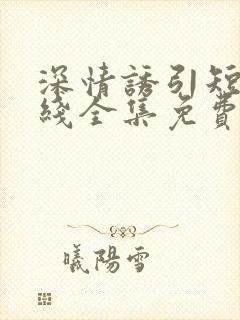 深情誘引短
綫全集免費
曦陽雪